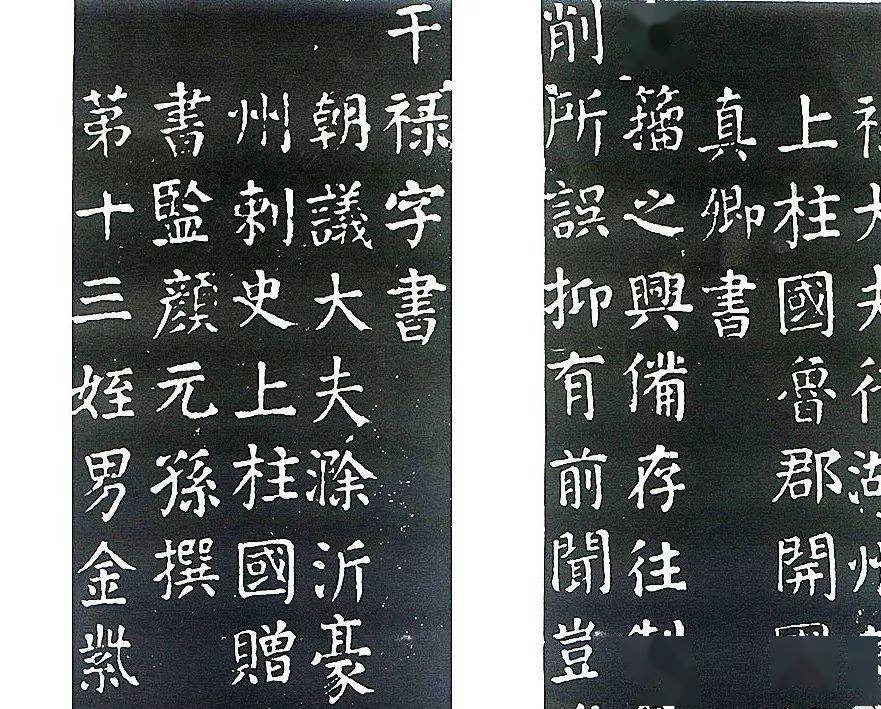 干禄字書
朝議大夫滁沂豪
州刺史上柱國贈
書監顔元孫撰
苐十三姪男金紫
夫行湖州
上柱國魯郡開國
真卿書
籒之興備存往制
削所誤抑有前聞豈